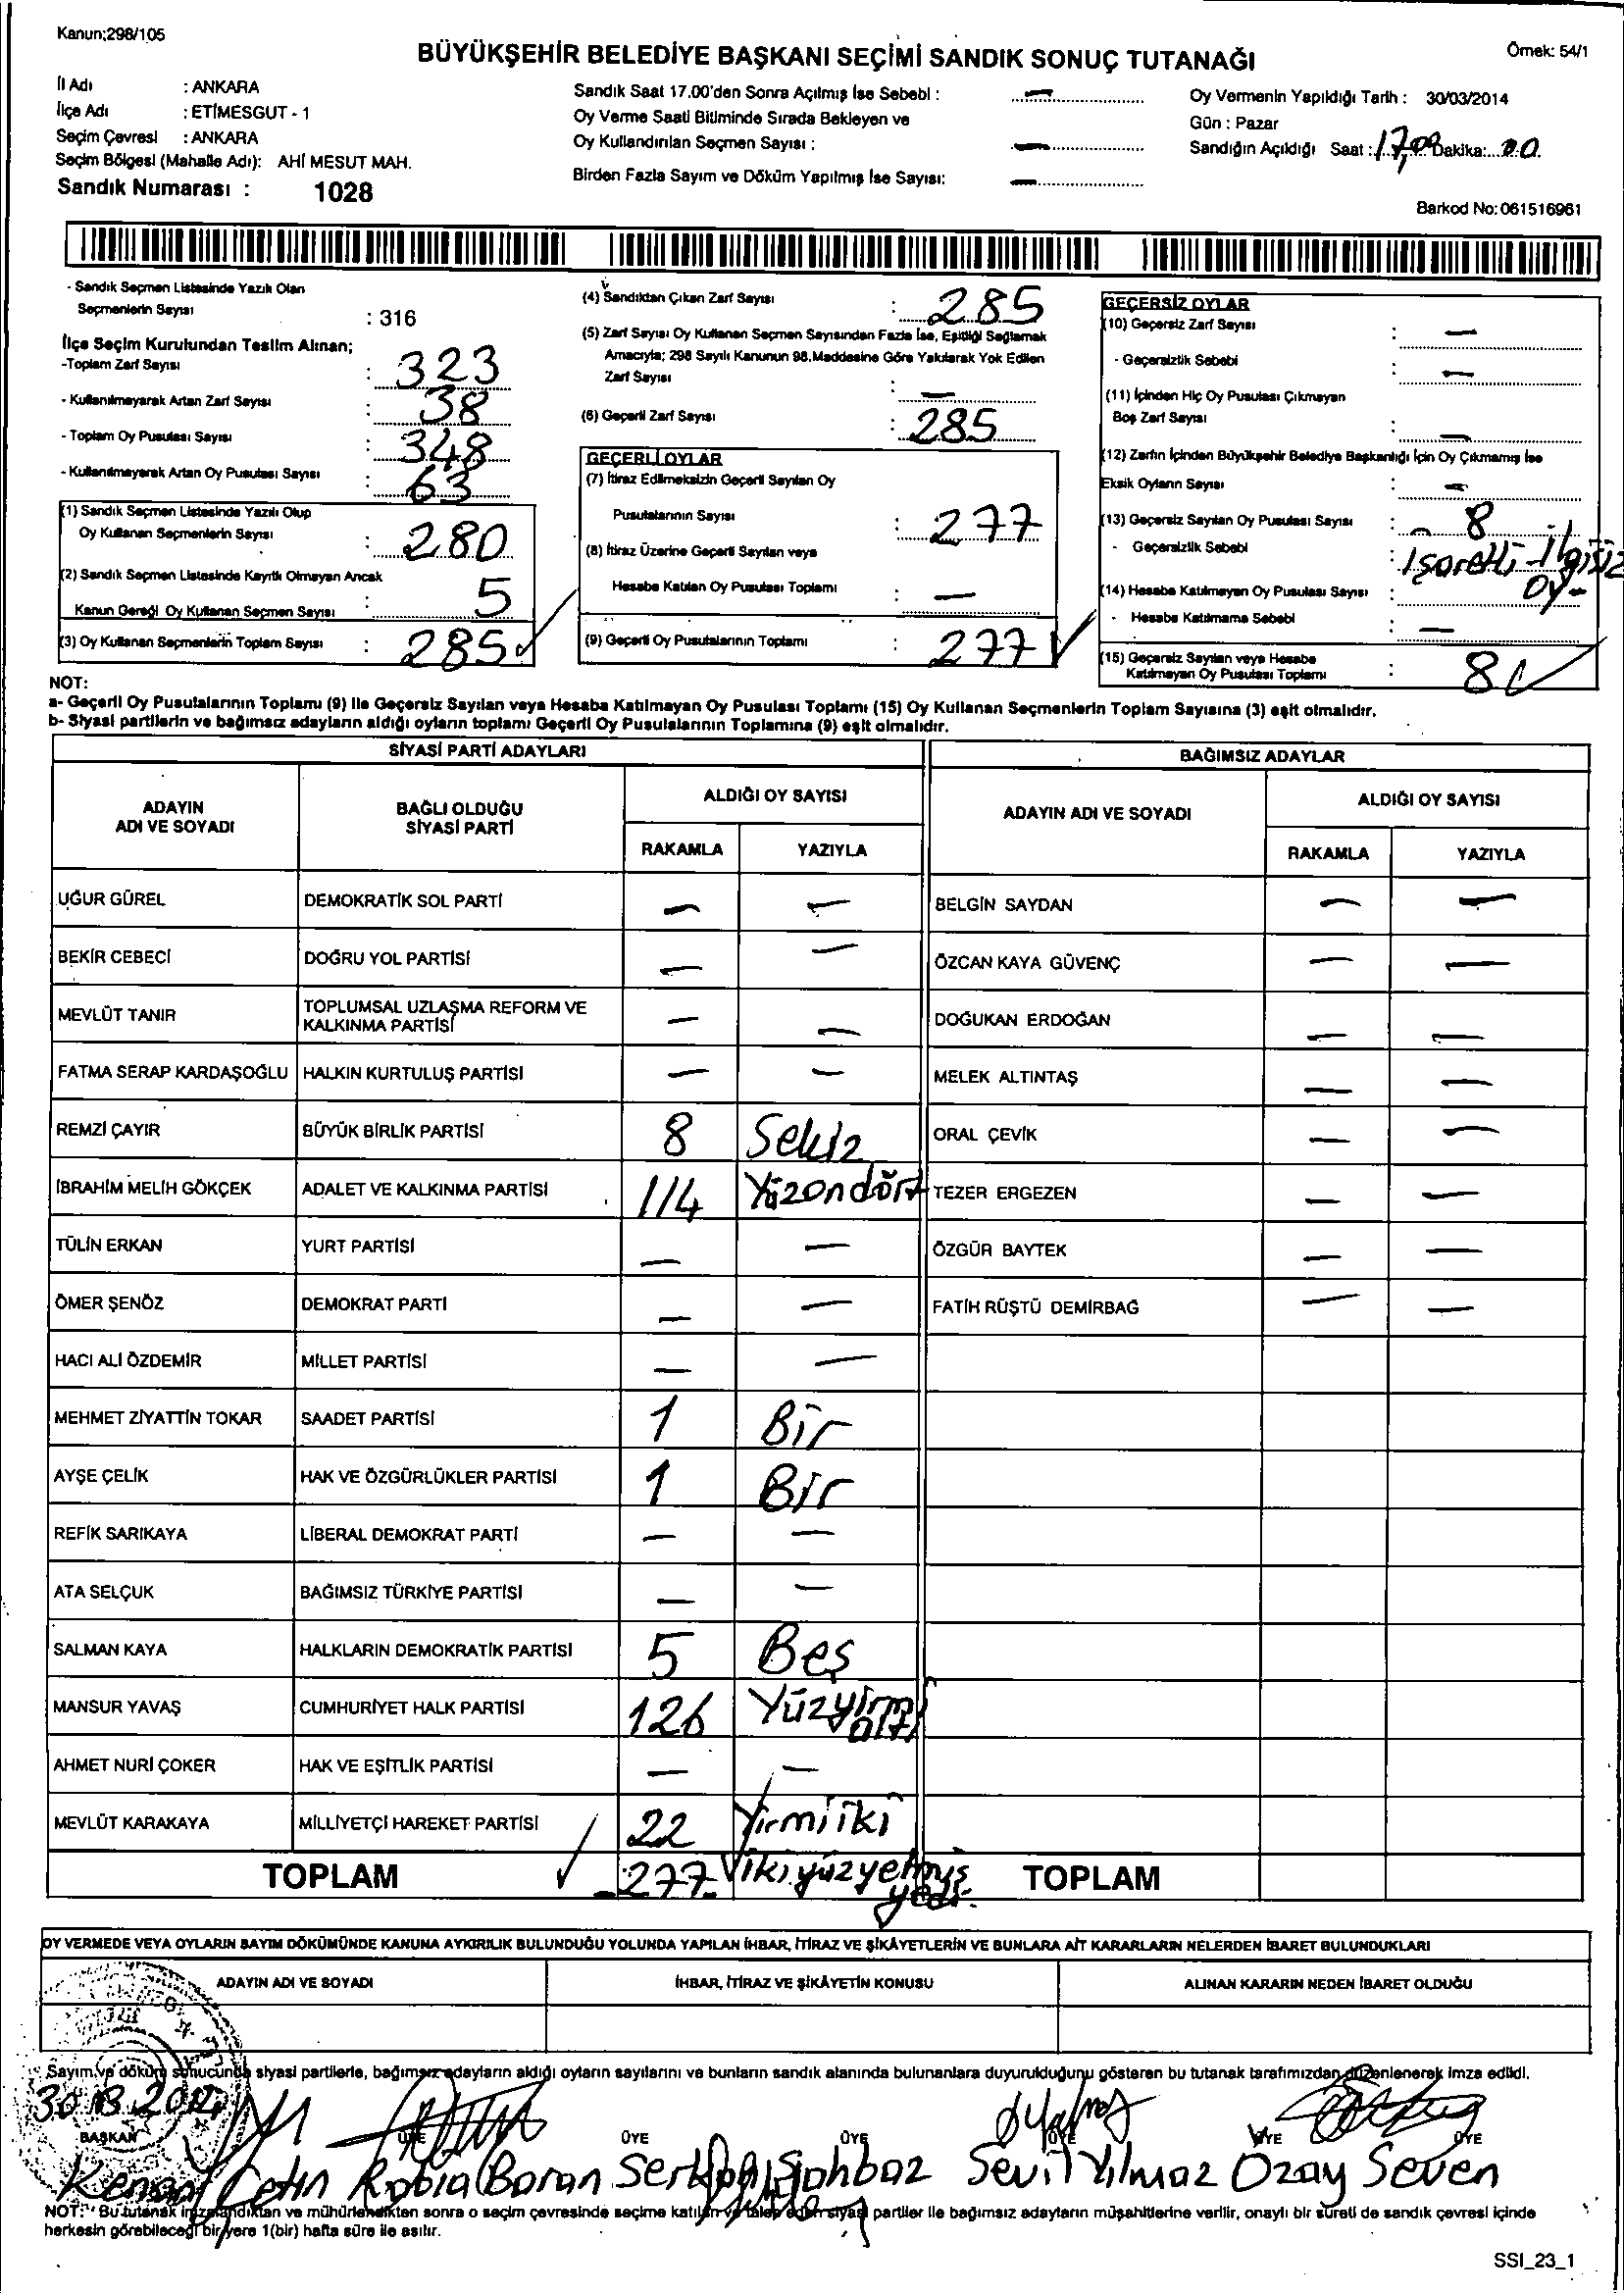 Kanun;298/105
BÜYÜKŞEHİR BELEDİYE BAŞKANI SEÇİMİ SANDIK SONUÇ TUTANAĞI
Örnek: 54/1
İl Adı : ANKARA
İlçe Adı : ETİMESGUT - 1
Seçim Çevresi : ANKARA
Seçim Bölgesi (Mahalle Adı): AHİ MESUT MAH.
Sandık Numarası : 1028
Sandık Saat 17.00'den Sonra Açılmış İse Sebebi : —
Oy Verme Saati Bitiminde Sırada Bekleyen ve
Oy Kullandırılan Seçmen Sayısı : —
Birden Fazla Sayım ve Döküm Yapılmış İse Sayısı: —
Oy Vermenin Yapıldığı Tarih : 30/03/2014
Gün : Pazar
Sandığın Açıldığı Saat : 17,00 Dakika: 00
Barkod No: 061516961
- Sandık Seçmen Listesinde Yazılı Olan
Seçmenlerin Sayısı : 316
İlçe Seçim Kurulundan Teslim Alınan;
-Toplam Zarf Sayısı : 323
- Kullanılmayarak Artan Zarf Sayısı : 38
- Toplam Oy Pusulası Sayısı : 348
- Kullanılmayarak Artan Oy Pusulası Sayısı : 63
(1) Sandık Seçmen Listesinde Yazılı Olup
Oy Kullanan Seçmenlerin Sayısı : 280
(2) Sandık Seçmen Listesinde Kayıtlı Olmayan Ancak
Kanun Gereği Oy Kullanan Seçmen Sayısı : 5
(3) Oy Kullanan Seçmenlerin Toplam Sayısı : 285
(4) Sandıktan Çıkan Zarf Sayısı : 285
(5) Zarf Sayısı Oy Kullanan Seçmen Sayısından Fazla İse, Eşitliği Sağlamak
Amacıyla; 298 Sayılı Kanunun 98.Maddesine Göre Yakılarak Yok Edilen
Zarf Sayısı : —
(6) Geçerli Zarf Sayısı : 285
GEÇERLİ OYLAR
(7) İtiraz Edilmeksizin Geçerli Sayılan Oy
Pusulalarının Sayısı : 277
(8) İtiraz Üzerine Geçerli Sayılan veya
Hesaba Katılan Oy Pusulası Toplamı : —
(9) Geçerli Oy Pusulalarının Toplamı : 277
GEÇERSİZ OYLAR
(10) Geçersiz Zarf Sayısı : —
- Geçersizlik Sebebi : —
(11) İçinden Hiç Oy Pusulası Çıkmayan
Boş Zarf Sayısı : —
(12) Zarfın İçinden Büyükşehir Belediye Başkanlığı İçin Oy Çıkmamış İse
Eksik Oyların Sayısı : —
(13) Geçersiz Sayılan Oy Pusulası Sayısı : 8
- Geçersizlik Sebebi : İşaretli - İlgisiz
Oy -
(14) Hesaba Katılmayan Oy Pusulası Sayısı :
- Hesaba Katılmama Sebebi : —
(15) Geçersiz Sayılan veya Hesaba
Katılmayan Oy Pusulası Toplamı : 8
NOT:
a- Geçerli Oy Pusulalarının Toplamı (9) ile Geçersiz Sayılan veya Hesaba Katılmayan Oy Pusulası Toplamı (15) Oy Kullanan Seçmenlerin Toplam Sayısına (3) eşit olmalıdır.
b- Siyasi partilerin ve bağımsız adayların aldığı oyların toplamı Geçerli Oy Pusulalarının Toplamına (9) eşit olmalıdır.
SİYASİ PARTİ ADAYLARI
BAĞIMSIZ ADAYLAR
ADAYIN
ADI VE SOYADI
BAĞLI OLDUĞU
SİYASİ PARTİ
ALDIĞI OY SAYISI
RAKAMLA YAZIYLA
ADAYIN ADI VE SOYADI
ALDIĞI OY SAYISI
RAKAMLA YAZIYLA
UĞUR GÜREL DEMOKRATİK SOL PARTİ — — BELGİN SAYDAN — —
BEKİR CEBECİ DOĞRU YOL PARTİSİ — — ÖZCAN KAYA GÜVENÇ — —
MEVLÜT TANIR TOPLUMSAL UZLAŞMA REFORM VE
KALKINMA PARTİSİ — — DOĞUKAN ERDOĞAN — —
FATMA SERAP KARDAŞOĞLU HALKIN KURTULUŞ PARTİSİ — — MELEK ALTINTAŞ — —
REMZİ ÇAYIR BÜYÜK BİRLİK PARTİSİ 8 Sekiz ORAL ÇEVİK — —
İBRAHİM MELİH GÖKÇEK ADALET VE KALKINMA PARTİSİ 114 Yüzondört TEZER ERGEZEN — —
TÜLİN ERKAN YURT PARTİSİ — — ÖZGÜR BAYTEK — —
ÖMER ŞENÖZ DEMOKRAT PARTİ — — FATİH RÜŞTÜ DEMİRBAĞ — —
HACI ALİ ÖZDEMİR MİLLET PARTİSİ — —
MEHMET ZİYATTİN TOKAR SAADET PARTİSİ 1 Bir
AYŞE ÇELİK HAK VE ÖZGÜRLÜKLER PARTİSİ 1 Bir
REFİK SARIKAYA LİBERAL DEMOKRAT PARTİ — —
ATA SELÇUK BAĞIMSIZ TÜRKİYE PARTİSİ — —
SALMAN KAYA HALKLARIN DEMOKRATİK PARTİSİ 5 Beş
MANSUR YAVAŞ CUMHURİYET HALK PARTİSİ 126 Yüzyirmi
altı
AHMET NURİ ÇOKER HAK VE EŞİTLİK PARTİSİ — —
MEVLÜT KARAKAYA MİLLİYETÇİ HAREKET PARTİSİ 22 Yirmiiki
TOPLAM 277 ikiyüzyetmiş TOPLAM
yedi.
OY VERMEDE VEYA OYLARIN SAYIM DÖKÜMÜNDE KANUNA AYKIRILIK BULUNDUĞU YOLUNDA YAPILAN İHBAR, İTİRAZ VE ŞİKÂYETLERİN VE BUNLARA AİT KARARLARIN NELERDEN İBARET BULUNDUKLARI
ADAYIN ADI VE SOYADI İHBAR, İTİRAZ VE ŞİKÂYETİN KONUSU ALINAN KARARIN NEDEN İBARET OLDUĞU
Sayım ve döküm sonucunda siyasi partilerle, bağımsız adayların aldığı oyların sayılarını ve bunların sandık alanında bulunanlara duyurulduğunu gösteren bu tutanak tarafımızdan düzenlenerek imza edildi.
30.03.2014
BAŞKAN ÜYE ÜYE ÜYE ÜYE ÜYE ÜYE
Kenan Çetin Rabia Baran Serkan Şahbaz Sevil Yılmaz Ozay Seven
NOT: Bu tutanak imzalandıktan ve mühürlendikten sonra o seçim çevresinde seçime katılan ve talep eden siyasi partiler ile bağımsız adayların müşahitlerine verilir, onaylı bir sureti de sandık çevresi içinde
herkesin görebileceği bir yere 1(bir) hafta süre ile asılır.
SSI_23_1